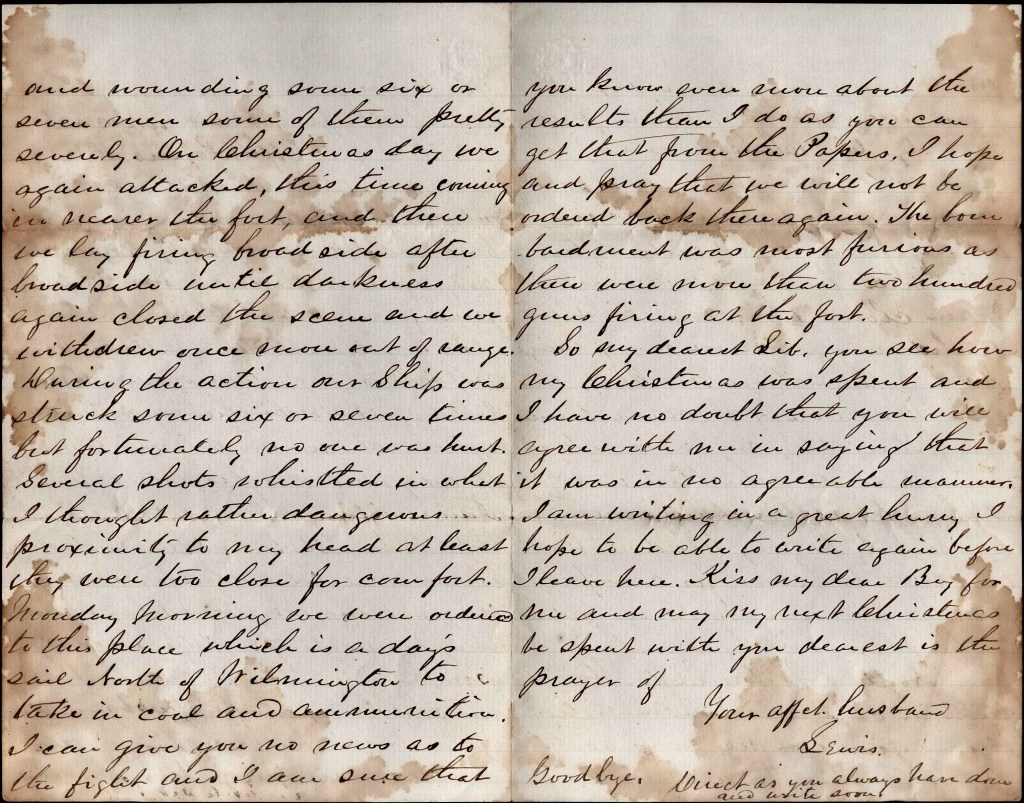 and wounding some six or
seven men some of them pretty
severely. On Christmas day we
again attacked, this time coming
in nearer the fort, and there
we lay firing broadside after
broadside until darkness
again closed the scene and we
withdrew once more out of range.
During the action our Ship was
struck some six or seven times
but fortunately no one was hurt.
Several shots whistled in what
I thought rather dangerous
proximity to my head at least
they were too close for comfort.
Monday morning we were ordered
to this place which is a day's
sail North of Wilmington to
take in coal and ammunition.
I can give you no news as to
the fight and I am sure that
you know even more about the
results than I do as you can
get that from the Papers. I hope
and pray that we will not be
ordered back there again. The bom
bardment was most furious as
there were more than two hundred
guns firing at the fort.
So my dearest Lib, you see how
my Christmas was spent and
I have no doubt that you will
agree with me in saying that
it was in no agreeable manner.
I am writing in a great hurry I
hope to be able to write again before
I leave here. Kiss my dear Boy for
me and may my next Christmas
be spent with you dearest is the
prayer of
Your affct. husband
Lewis.
Goodbye. Direct as you always have done
and write soon